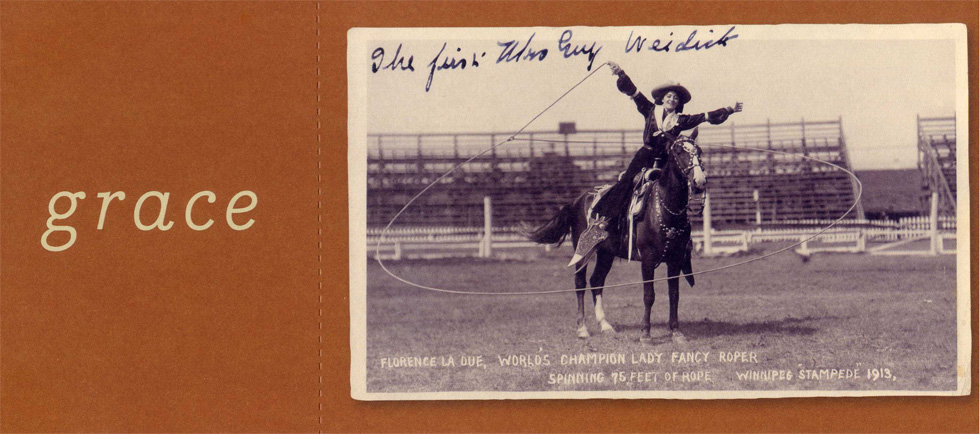 grace
The first Mrs Guy Weidick
FLORENCE LA DUE, WORLD'S CHAMPION LADY FANCY ROPER
SPINNING 75 FEET OF ROPE WINNIPEG "STAMPEDE" 1913,